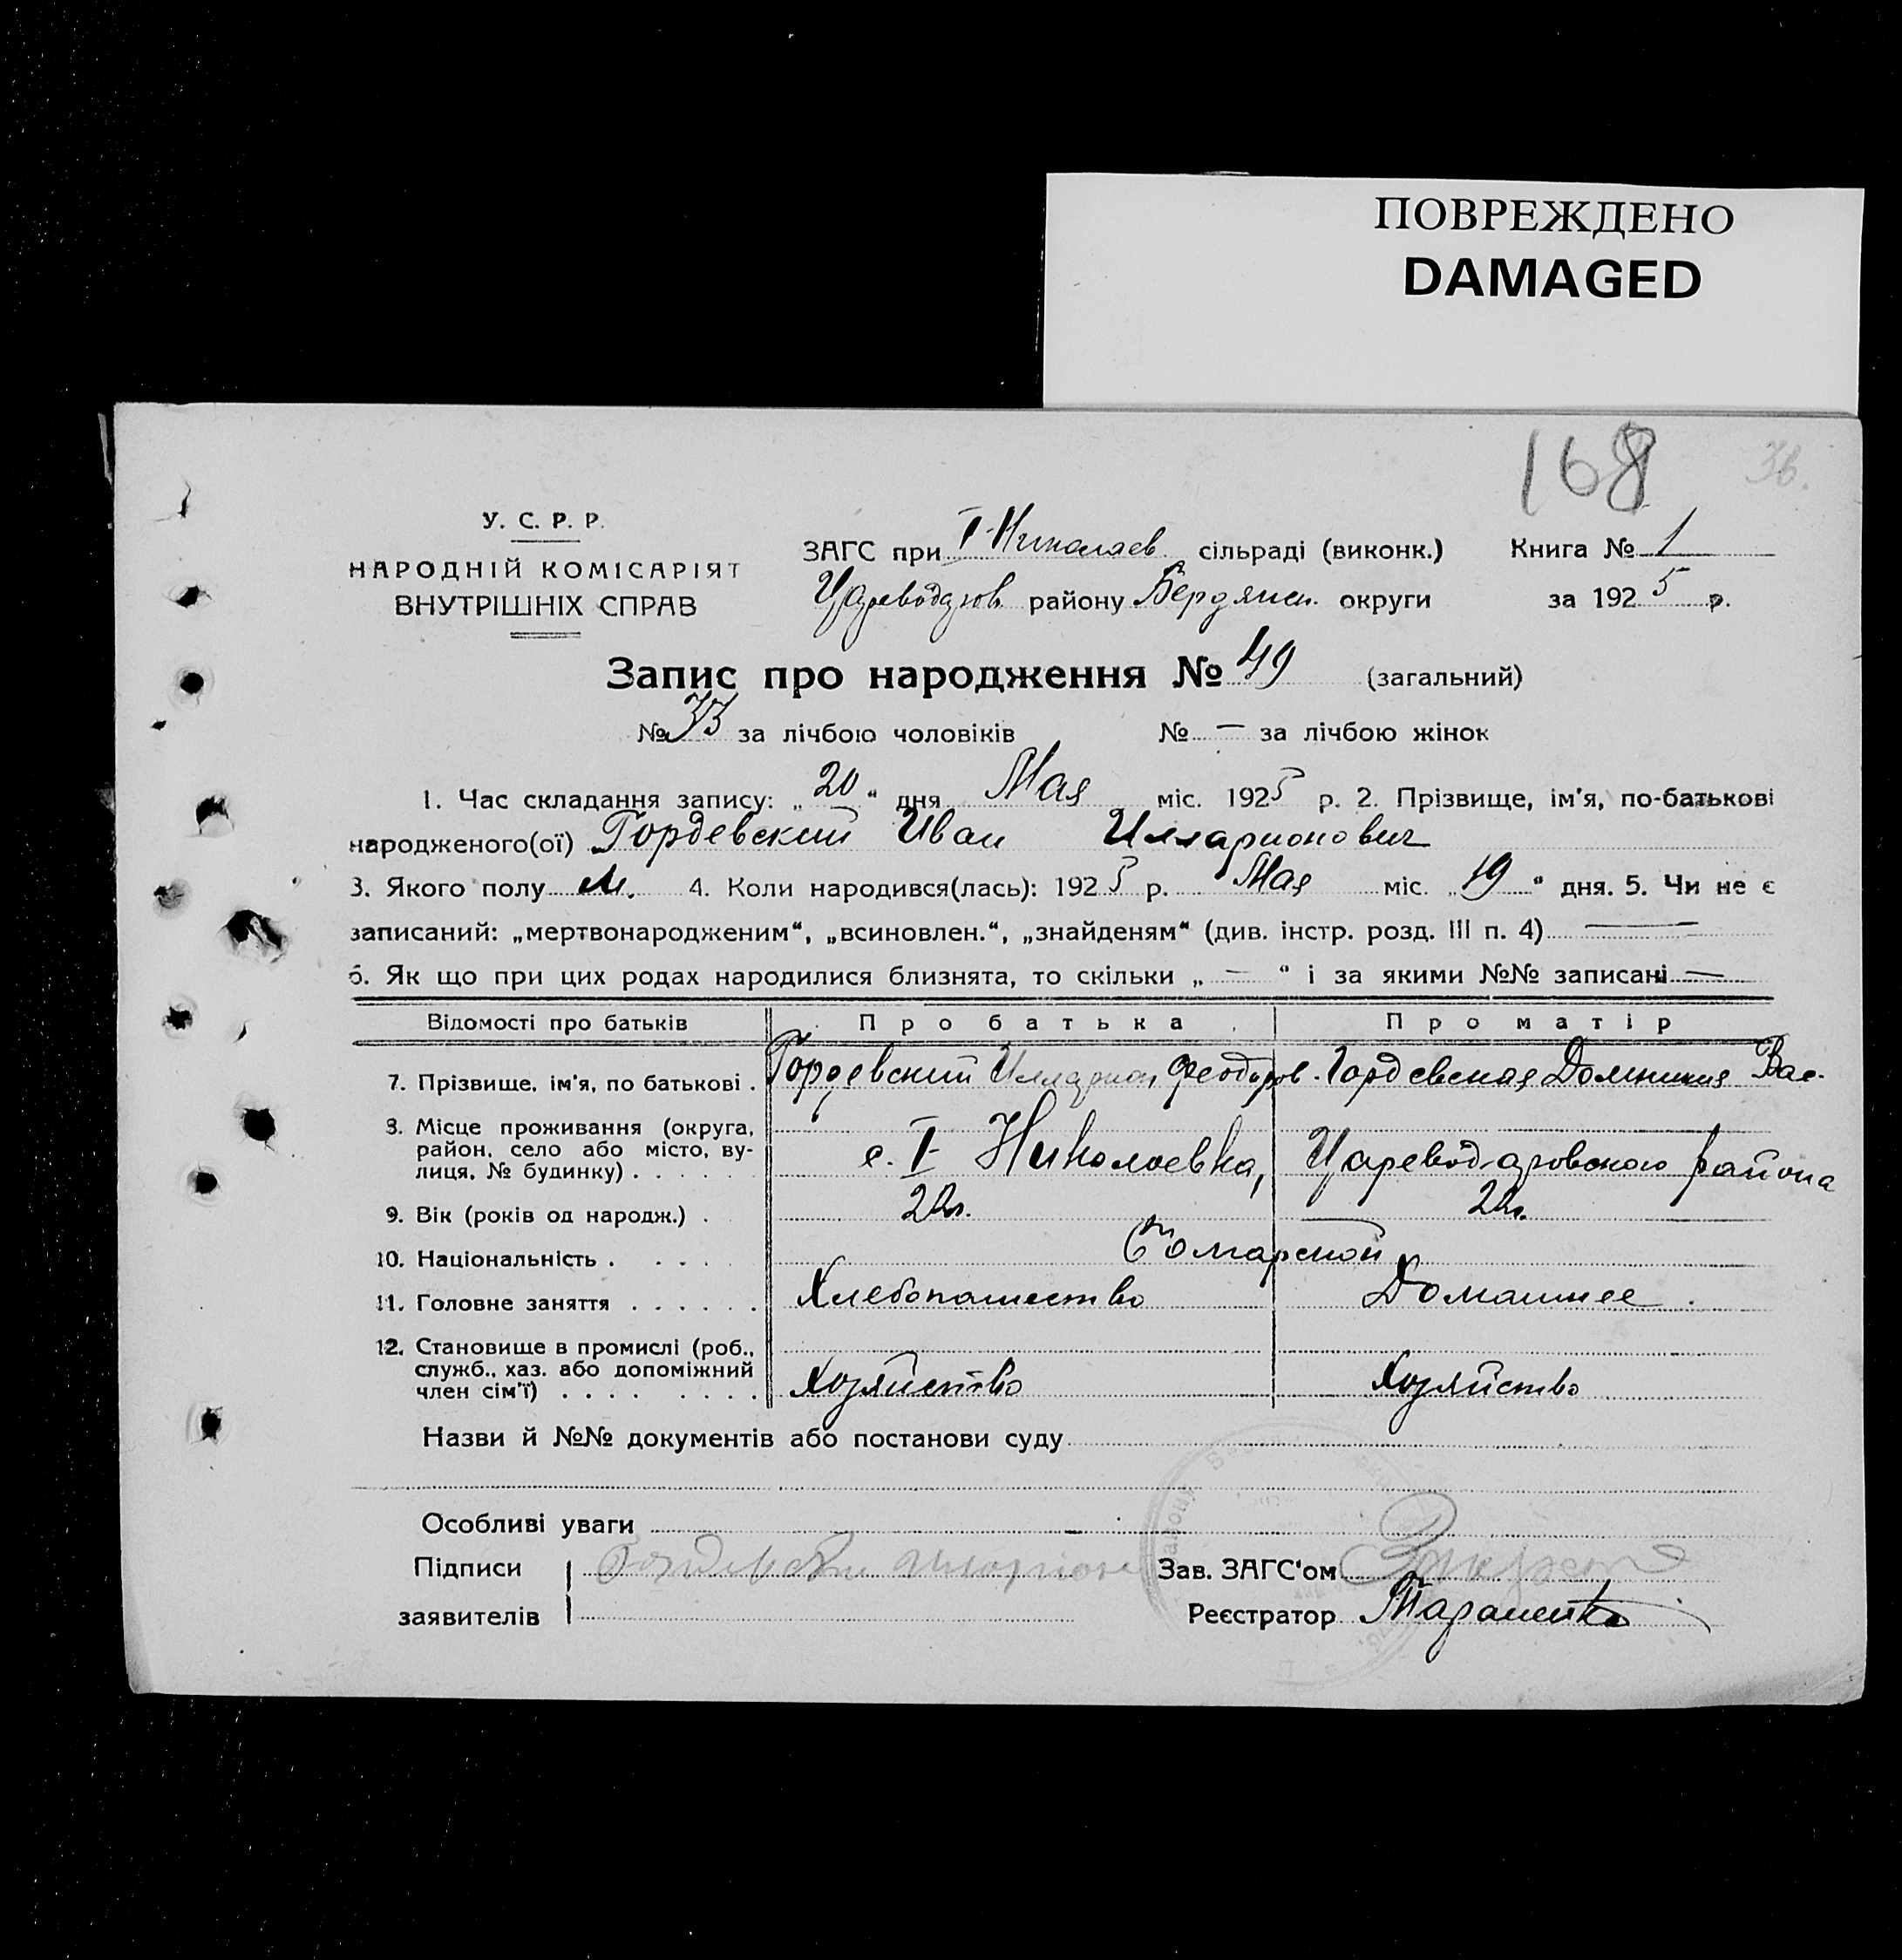 ПОВРЕЖДЕНО
DAMAGED
168
36.
У. С. Р. Р.
НАРОДНІЙ КОМІСАРІЯТ
ВНУТРІШНІХ СПРАВ
ЗАГС при I-Николаев. сільраді (виконк.) Книга № 1
району Бердянск. округи за 1925 р.
Запис про народження № 49 (загальний)
№ 33 за лічбою чоловіків № — за лічбою жінок
1. Час складання запису: „20“ дня Мая міс. 1925 р. 2. Прізвище, ім'я, по-батькові
народженого(ої) Гордевский Иван Илларионович
3. Якого полу м. 4. Коли народився(лась): 1925 р. Мая міс. „19“ дня. 5. Чи не є
записаний: „мертвонародженим“, „всиновлен.“, „знайденям“ (див. інстр. розд. III п. 4) —
6. Як що при цих родах народилися близнята, то скільки „—“ і за якими №№ записані —
Відомості про батьків Про батька Про матір
7. Прізвище, ім'я, по батькові . Гордевский Илларион Феодоров. Гордевская Домникия Вас.
8. Місце проживання (округа,
район, село або місто, ву-
лиця, № будинку) . . . . . с. I Николаевка, Царевод-азовского района
9. Вік (років од народж.) . 22л. 22л.
10. Національність . . . . .
11. Головне заняття . . . . . . Хлебопашество Домашнее
12. Становище в промислі (роб.,
служб., хаз. або допоміжний
член сім'ї) . . . . . . . . Хозяйство Хозяйство
Назви й №№ документів або постанови суду
Особливі уваги
Підписи
заявителів
Зав. ЗАГС'ом
Реєстратор Тараненко